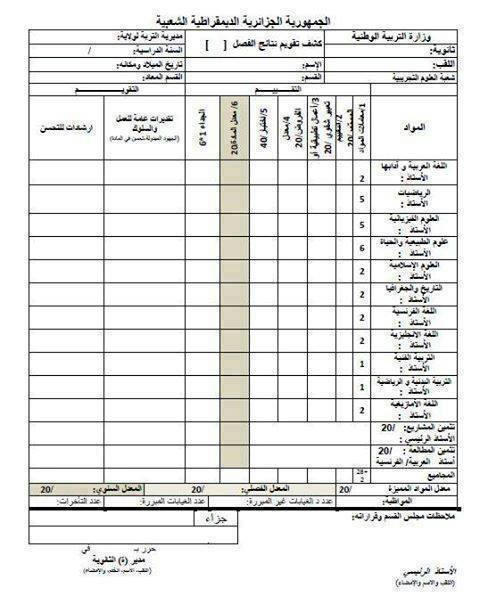 الجمهورية الجزائرية الديمقراطية الشعبية
وزارة التربية الوطنية
كشف تقويم نتائج الفصل [ ]
مديرية التربة لولاية:
ثانوية:
السنة الدراسية: /
اللقب:
الإسم:
تاريخ الميلاد ومكانه:
شعبة العلوم التجريبية
القسم:
القسم المعاد:
التقييم
التقويم
المواد
1/معاملات المواد
2/التقييم المستمر/20
3/أعمال تطبيقية أو تعبير شفوي /20
4/معدل الفروض/20
5/اختبار/40
6/ معدل المادة/20
الجداء 1*6
تقديرات عامة للعمل والسلوك
(الجهود المبذولة تحسن في المادة)
ارشادات للتحسن
اللغة العربية و آدابها
الأستاذ : 2
الرياضيات
الأستاذ : 5
العلوم الفيزيائية
الأستاذ : 5
علوم الطبيعية والحياة
الأستاذ : 6
العلوم الإسلامية
الأستاذ : 2
التاريخ والجغرافيا
الأستاذ : 2
اللغة الفرنسية
الأستاذ : 2
اللغة الانجليزية
الأستاذ : 2
التربية الفنية
الأستاذ : 1
التربية البدنية و الرياضية
الأستاذ : 1
اللغة الأمازيغية
الأستاذ : 2
تثمين المشاريع: /20
الأستاذ الرئيسي :
تثمين المطالعة : /20
أستاذ العربية/ الفرنسية
المجاميع 28+2
معدل المواد المميزة /20
المعدل الفصلي: /20
المعدل السنوي: /20
المواظبة:
عدد د الغيابات غير المبررة:
عدد الغيابات المبررة:
عدد التأخرات:
ملاحظات مجلس القسم وقراراته:
جزاء
حرر بـ في
مدير (ة) الثانوية
(اللقب، الاسم، الختم، والإمضاء)
الأستاذ الرئيسي
(اللقب والاسم والإمضاء)